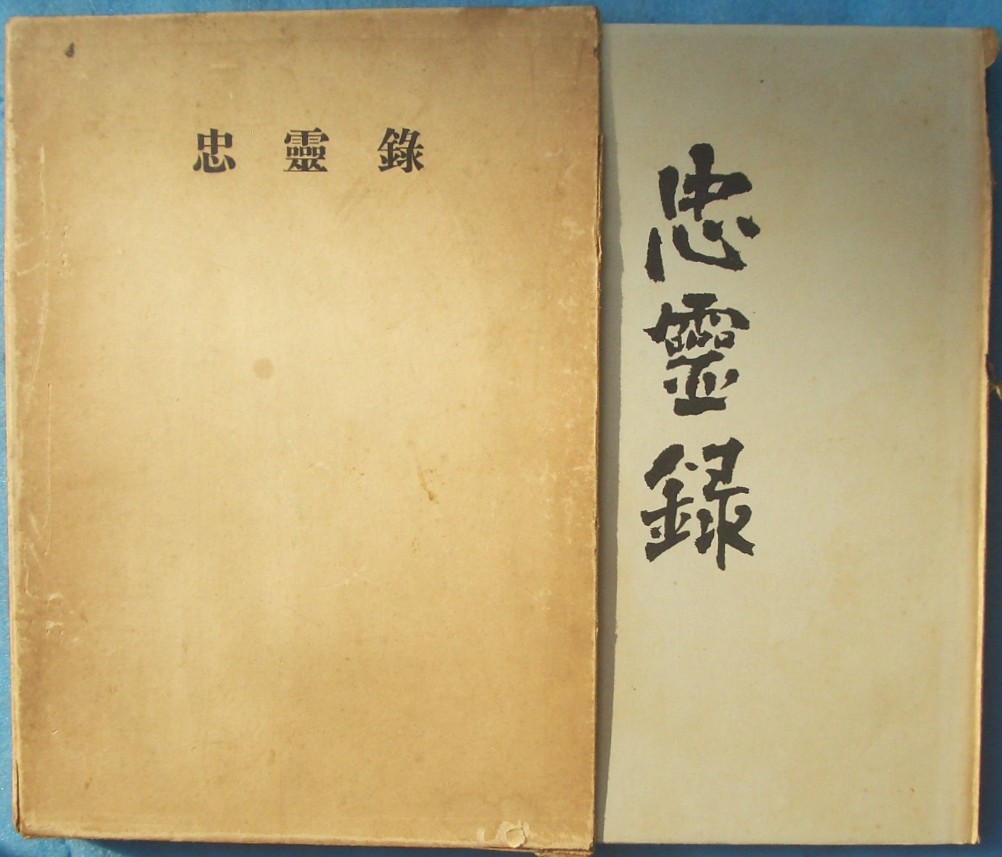 忠靈錄
忠靈録